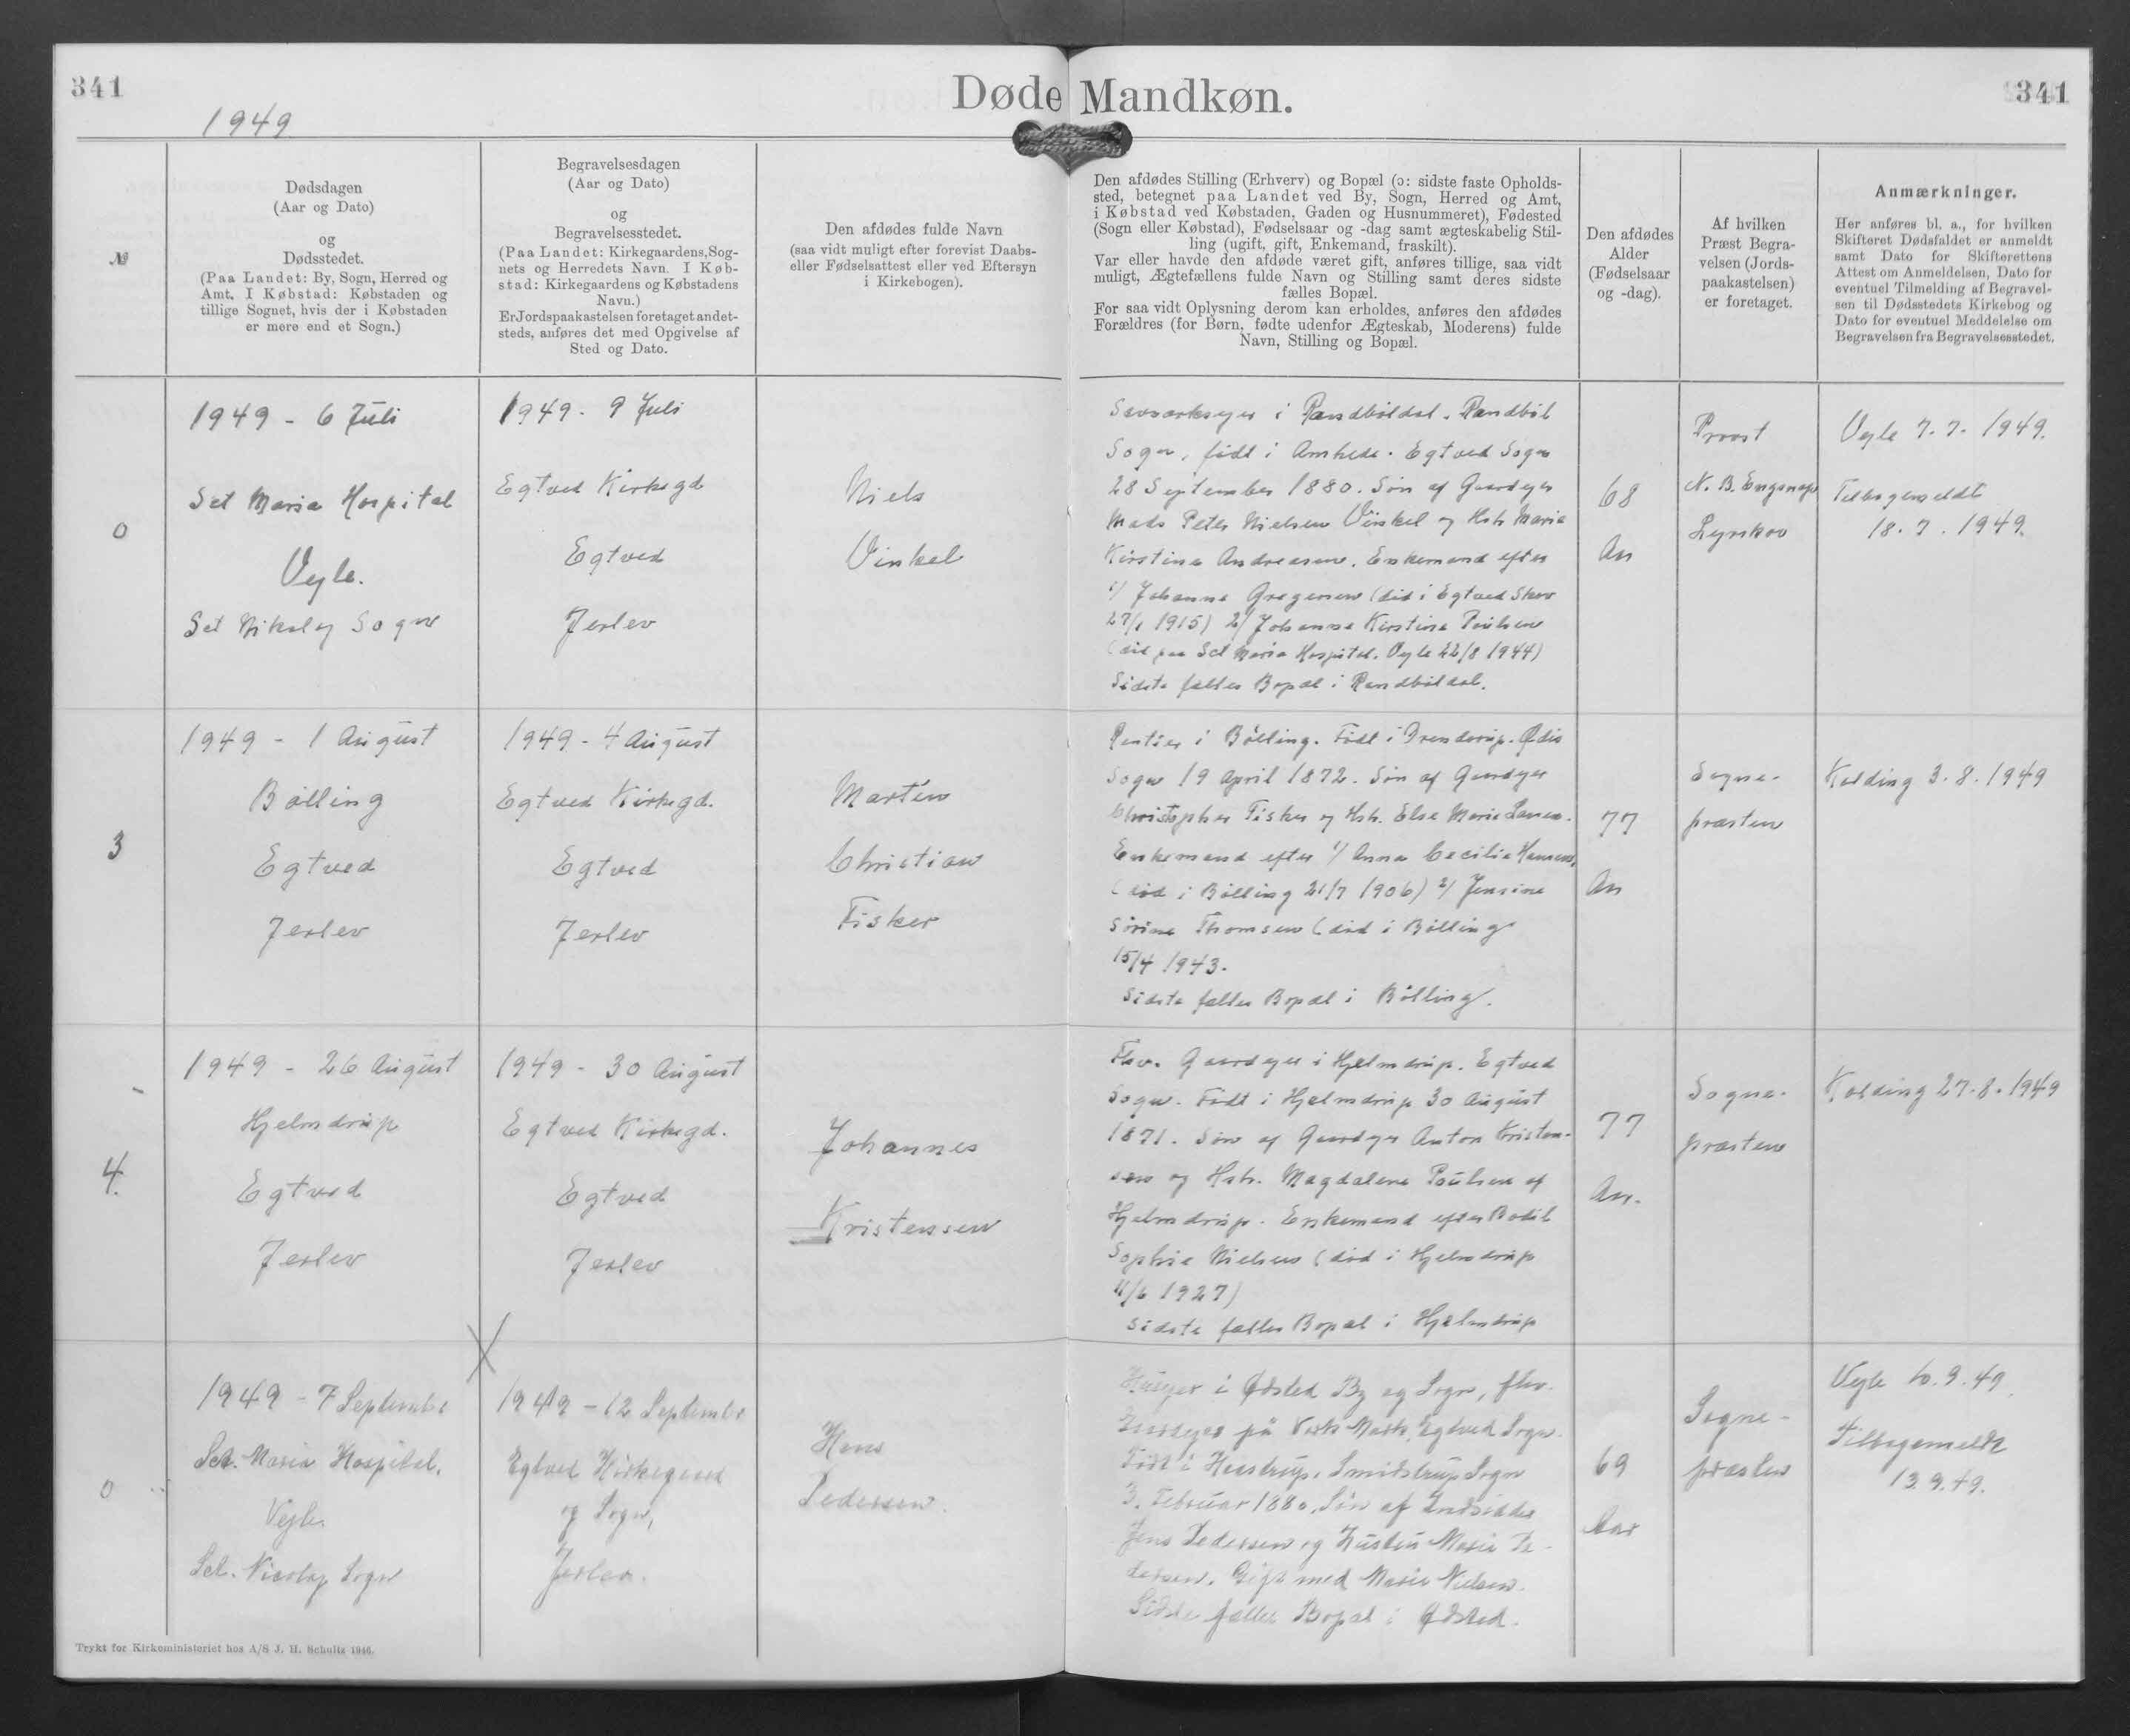 341
1949
Døde Mandkøn.
341
№
Dødsdagen
(Aar og Dato)
og
Dødsstedet.
(Paa Landet: By, Sogn, Herred og
Amt. I Købstad: Købstaden og
tillige Sognet, hvis der i Købstaden
er mere end et Sogn.)
Begravelsesdagen
(Aar og Dato)
og
Begravelsesstedet.
(Paa Landet: Kirkegaardens, Sog-
nets og Herredets Navn. I Køb-
stad: Kirkegaardens og Købstadens
Navn.)
Er Jordspaakastelsen foretaget andet-
steds, anføres det med Opgivelse af
Sted og Dato.
Den afdødes fulde Navn
(saa vidt muligt efter forevist Daabs-
eller Fødselsattest eller ved Eftersyn
i Kirkebogen).
Den afdødes Stilling (Erhverv) og Bopæl (ɔ: sidste faste Opholds-
sted, betegnet paa Landet ved By, Sogn, Herred og Amt,
i Købstad ved Købstaden, Gaden og Husnummeret), Fødested
(Sogn eller Købstad), Fødselsaar og -dag samt ægteskabelig Stil-
ling (ugift, gift, Enkemand, fraskilt).
Var eller havde den afdøde været gift, anføres tillige, saa vidt
muligt, Ægtefællens fulde Navn og Stilling samt deres sidste
fælles Bopæl.
For saa vidt Oplysning derom kan erholdes, anføres den afdødes
Forældres (for Børn, fødte udenfor Ægteskab, Moderens) fulde
Navn, Stilling og Bopæl.
Den afdødes
Alder
(Fødselsaar
og -dag).
Af hvilken
Præst Begra-
velsen (Jords-
paakastelsen)
er foretaget.
Anmærkninger.
Her anføres bl. a., for hvilken
Skifteret Dødsfaldet er anmeldt
samt Dato for Skifterettens
Attest om Anmeldelsen, Dato for
eventuel Tilmelding af Begravel-
sen til Dødsstedets Kirkebog og
Dato for eventuel Meddelelse om
Begravelsen fra Begravelsesstedet.
0
1949 - 6 Juli
Sct Maria Hospital
Vejle.
Sct Nikolaj Sogn
1949 - 9 Juli
Egtved Kirkegd
Egtved
Jerlev
Niels
Vinkel
Savværksejer i Randbøldal. Randbøl
Sogn, født i Amhede. Egtved Sogn
28 September 1880. Søn af Gaardejer
Mads Peter Nielsen Vinkel og Hstr Marie
Kirstine Andreasen. Enkemand efter
1/ Johanne Gregersen (død i Egtved Skov
1915) 2/ Johanne Kirstine Poulsen
(død paa Sct Maria Hospital. Vejle 22/8 1944)
Sidste fælles Bopæl i Randbøldal.
68
Aar
Provst
N. B. Engsnap
Lynskov
Vejle 7.7.1949.
Tilbagemeldt
18.7.1949.
3
1949 - 1 August
Bølling
Egtved
Jerlev
1949 - 4 August
Egtved Kirkegd.
Egtved
Jerlev
Martin
Christian
Fisker
Rentier i Bølling. Født i Drenderup. Ødis
Sogn 19 April 1872. Søn af Gaardejer
Christopher Fisker og Hstr. Else Marie Larsen.
Enkemand efter 1/ Anna Cecilie Hansen,
(død i Bølling 21/7 1906) 2/ Jensine
Sørine Thomsen (død i Bølling
15/4 1943.
Sidste fælles Bopæl i Bølling.
77
Aar
Sogne-
præsten
Kolding 3.8.1949
4.
1949 - 26 August
Hjelmdrup
Egtved
Jerlev
1949 - 30 August
Egtved Kirkegd.
Egtved
Jerlev
Johannes
Kristensen
Fhv. Gaardejer i Hjelmdrup. Egtved
Sogn. Født i Hjelmdrup 30 August
1871. Søn af Gaardejer Anton Kristen-
sen og Hstr. Magdalene Poulsen af
Hjelmdrup. Enkemand efter Bodil
Sophie Nielsen (død i Hjelmdrup
11/6 1927)
Sidste fælles Bopæl i Hjelmdrup
77
Aar.
Sogne-
præsten
Kolding 27.8.1949
0
1949 - 7 September
Sct. Maria Hospital.
Vejle.
Sct. Nicolaj Sogn
1949 - 12 September
Egtved Kirkegaard
og Sogn,
Jerlev.
Hans
Pedersen.
Husejer i Ødsted By og Sogn, fhv.
Gaardejer på Mark, Egtved Sogn.
Født i Haastrup, Smidstrup Sogn
3. Februar 1880. Søn af Indsidder
Jens Pedersen og Hustru Marie Pe-
dersen. Gift med Marie Nielsen.
Sidste fælles Bopæl i Ødsted.
69
Aar
Sogne-
præsten
Vejle 10.9.49.
Tilbagemeldt
13.9.49.
Trykt for Kirkeministeriet hos A/S J. H. Schultz 1946.